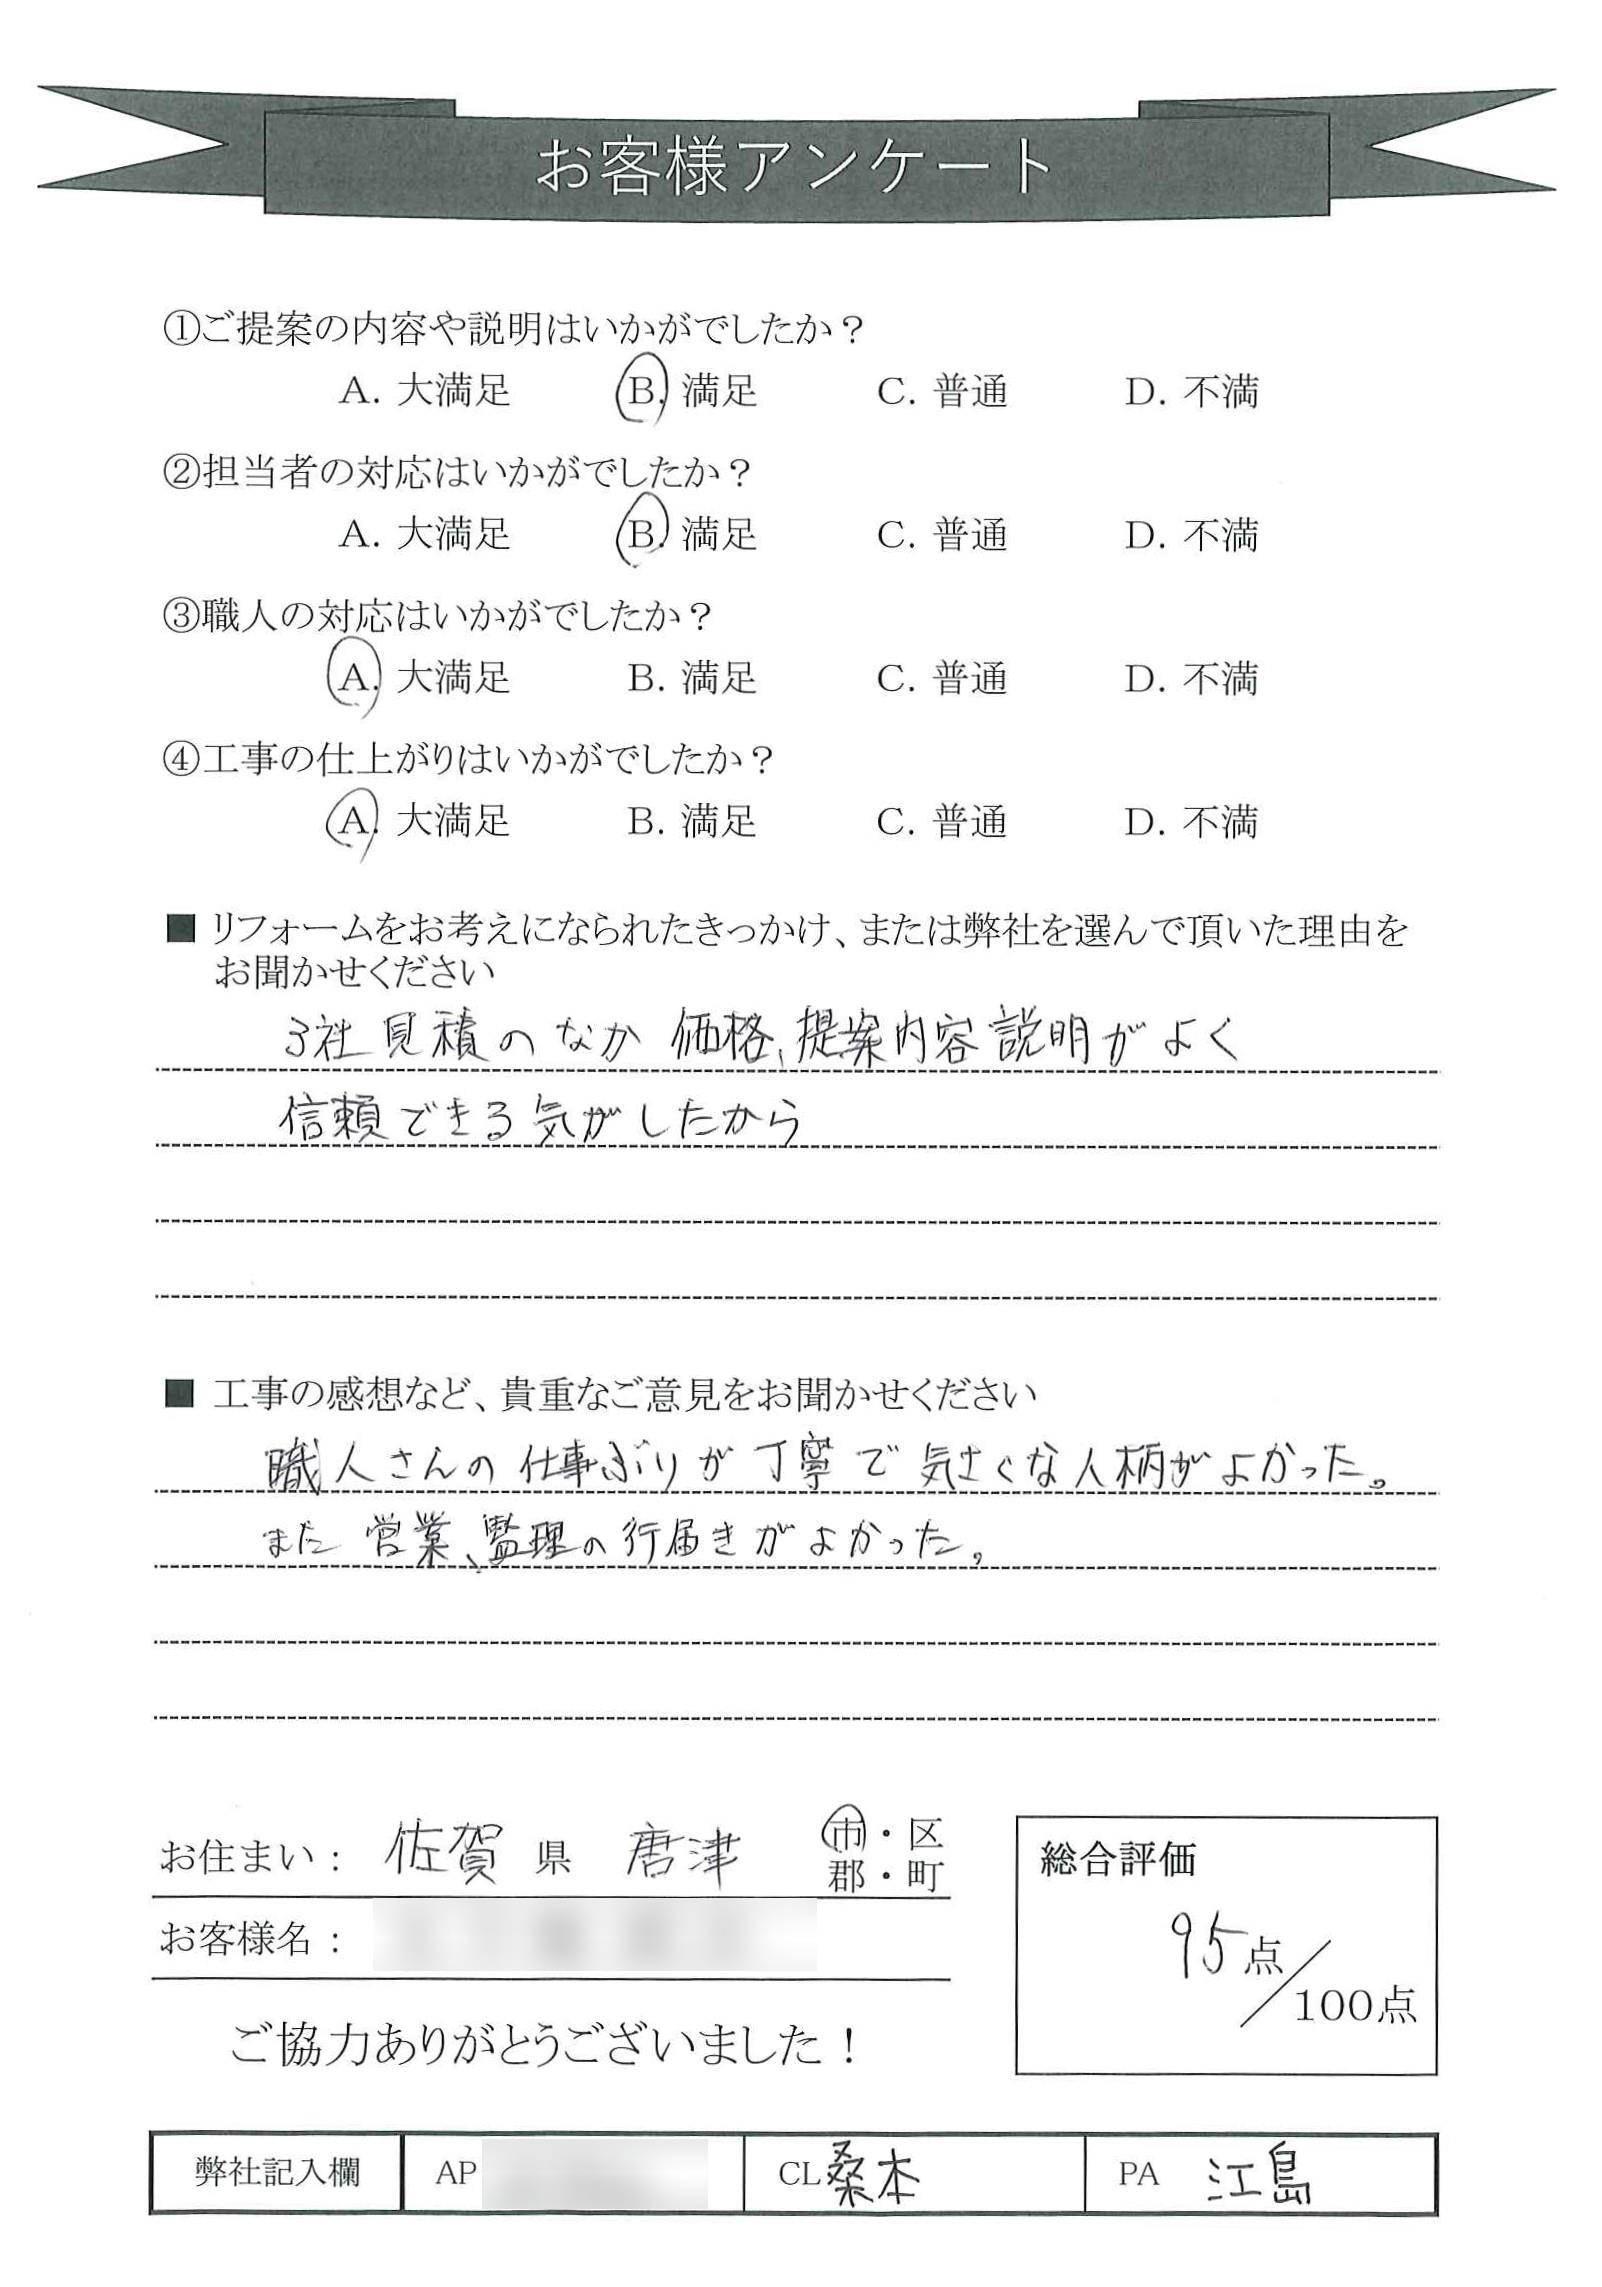 お客様アンケート
①ご提案の内容や説明はいかがでしたか？
A. 大満足 B. 満足 C. 普通 D. 不満
②担当者の対応はいかがでしたか？
A. 大満足 B. 満足 C. 普通 D. 不満
③職人の対応はいかがでしたか？
A. 大満足 B. 満足 C. 普通 D. 不満
④工事の仕上がりはいかがでしたか？
A. 大満足 B. 満足 C. 普通 D. 不満
■ リフォームをお考えになられたきっかけ、または弊社を選んで頂いた理由を
お聞かせください
3社見積のなか 価格、提案内容説明がよく
信頼できる気がしたから
■ 工事の感想など、貴重なご意見をお聞かせください
職人さんの仕事ぶりが丁寧で気さくな人柄がよかった。
また営業、監理の行届きがよかった。
お住まい： 佐賀 県 唐津 市・区
郡・町
お客様名：
総合評価
95点／100点
ご協力ありがとうございました！
弊社記入欄 AP CL 桑本 PA 江島